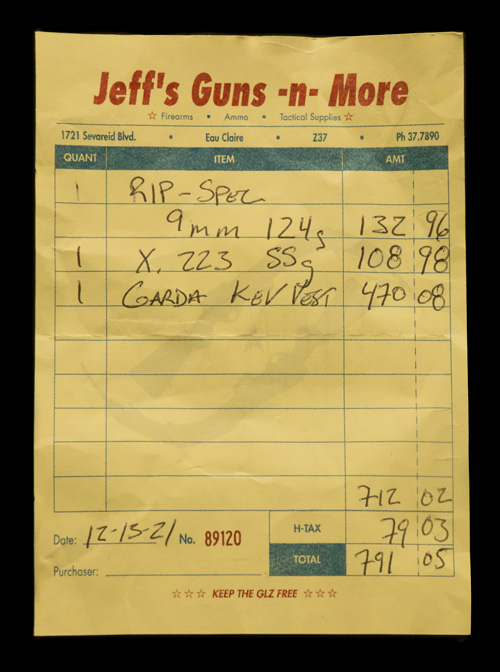 Jeff's Guns -n- More
☆ Firearms • Ammo • Tactical Supplies ☆
1721 Sevareid Blvd. • Eau Claire • Z37 • Ph 37.7890
QUANT ITEM AMT
1 RIP-SPEC
9mm 124g 132 96
1 X. 223 55g 108 98
1 GARDA KEV VEST 470 08
712 02
Date: 12-15-21 No. 89120 H-TAX 79 03
TOTAL 791 05
Purchaser:
☆☆☆ KEEP THE GLZ FREE ☆☆☆